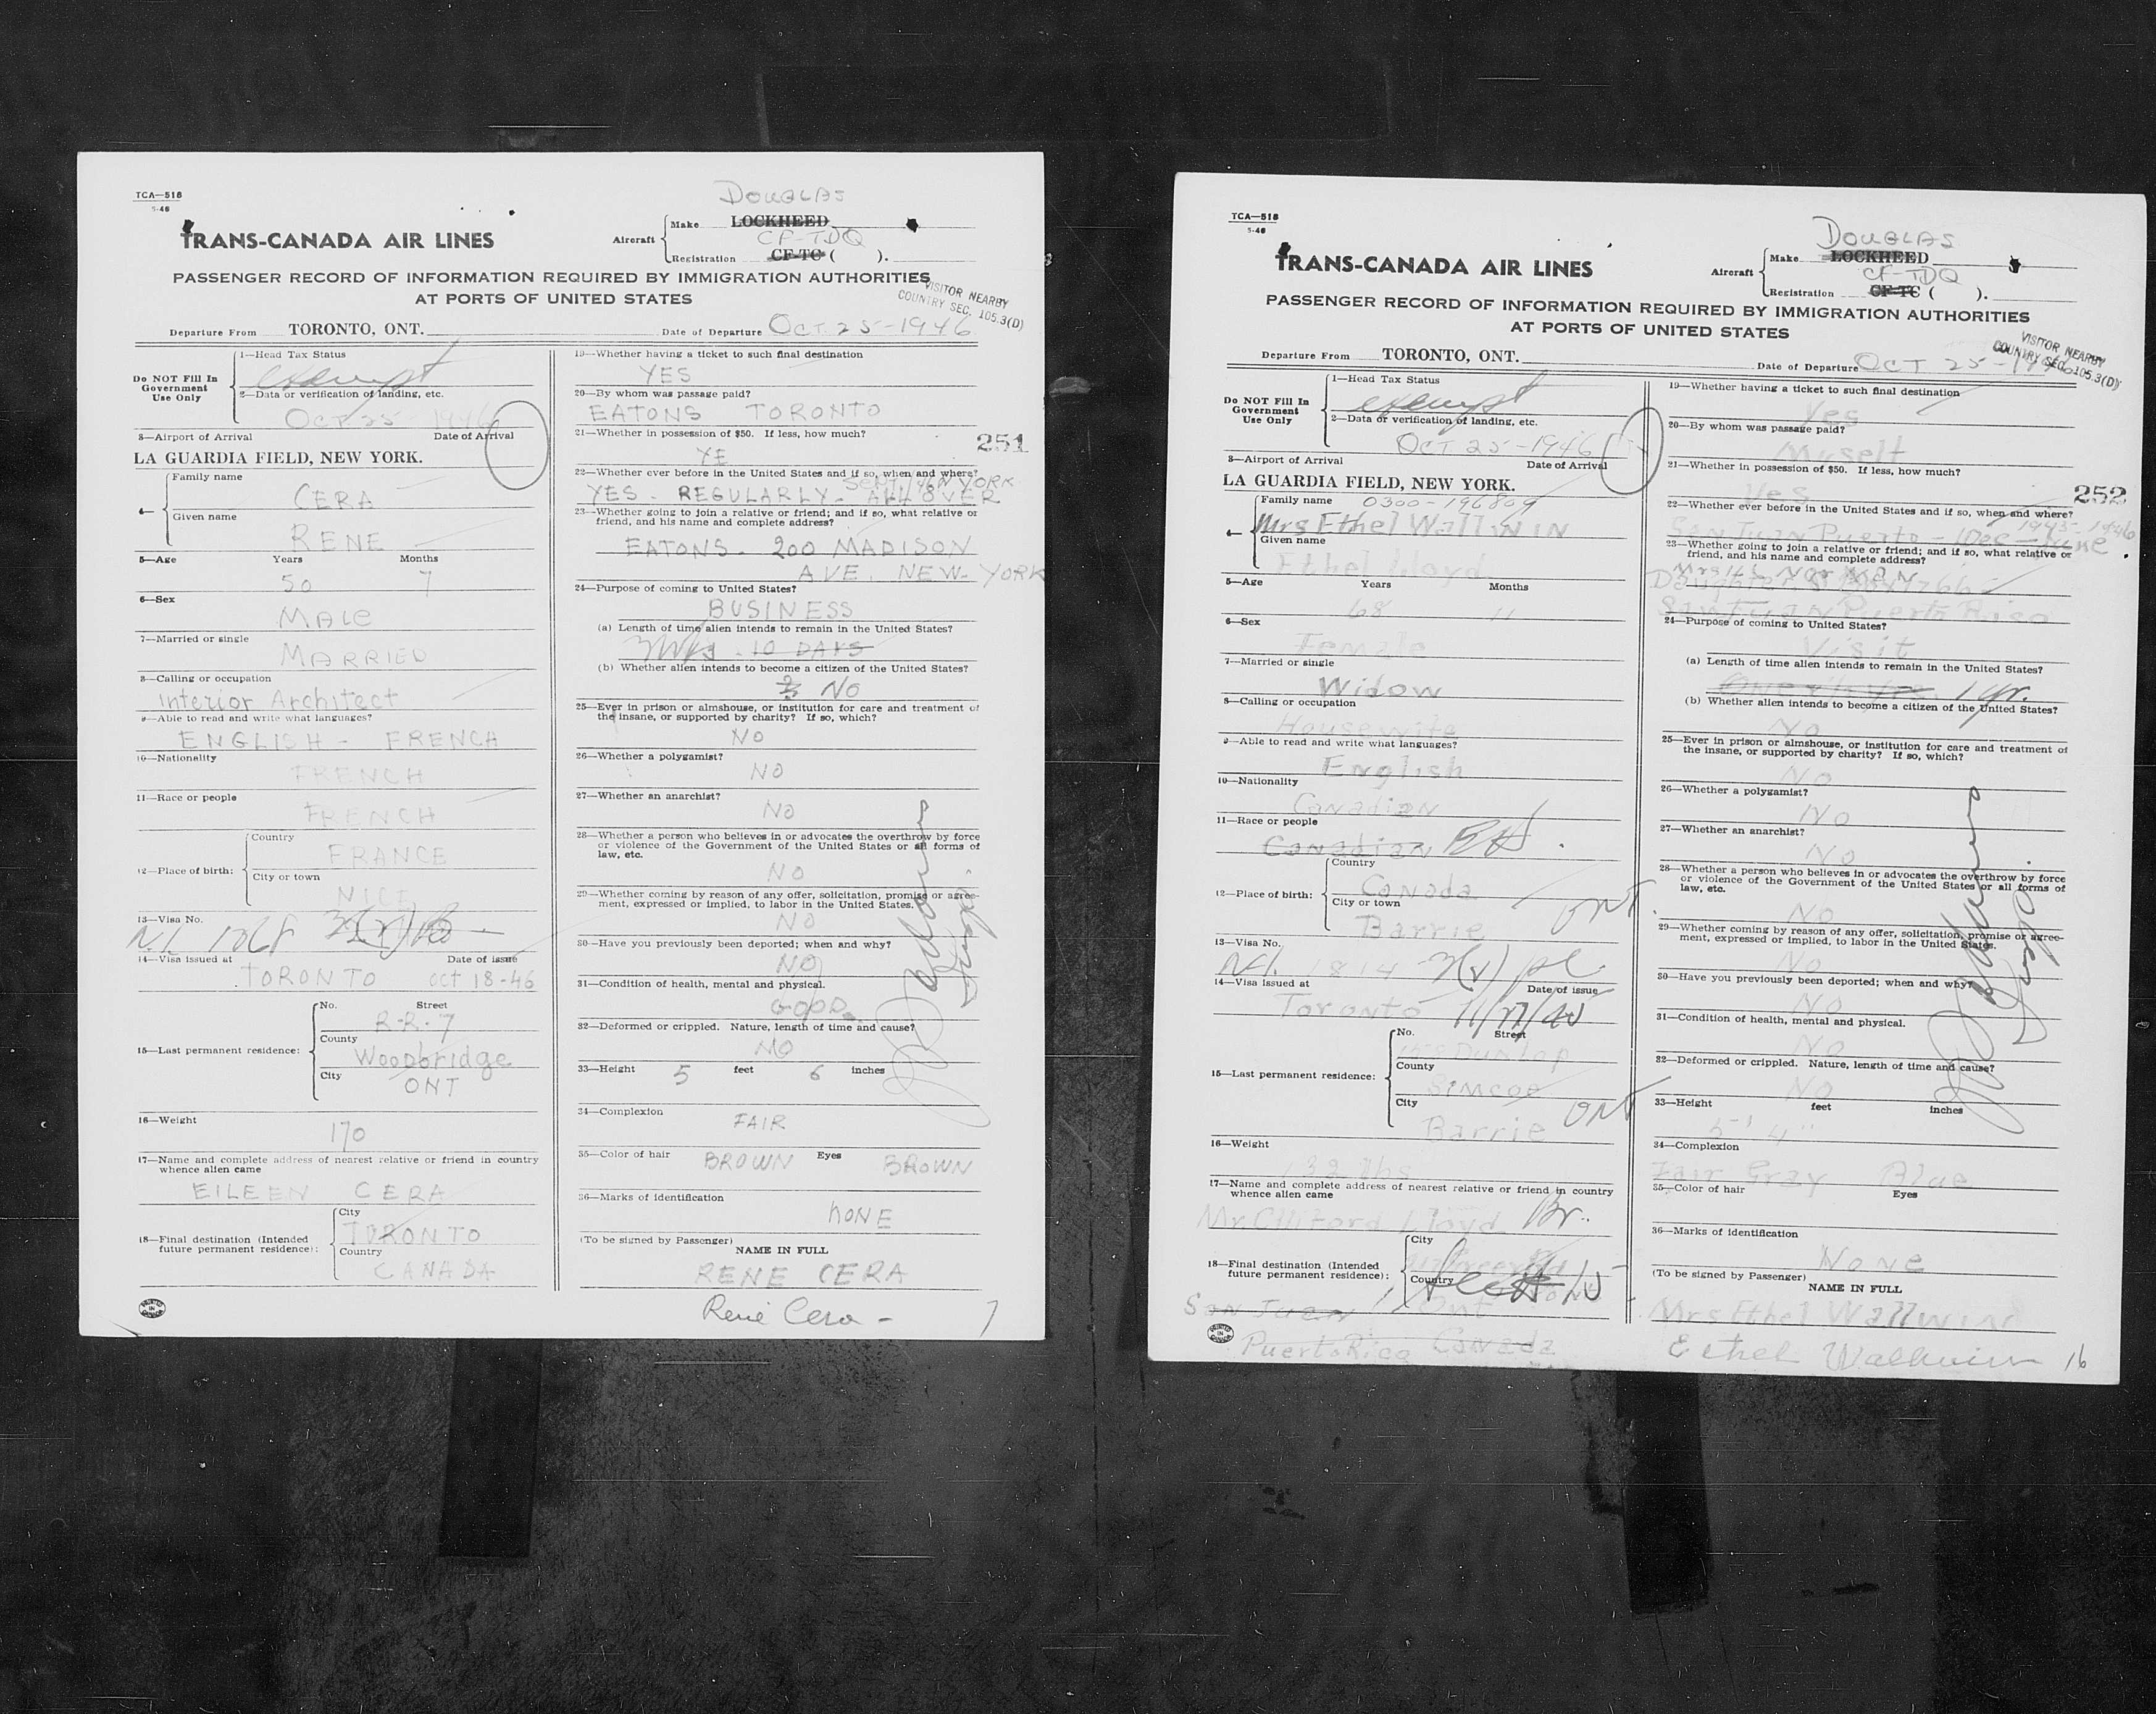 TCA—518
5-46
DOUGLAS
TRANS-CANADA AIR LINES
Aircraft
Make LOCKHEED
CF-TDQ
Registration CF-TC ( ).
PASSENGER RECORD OF INFORMATION REQUIRED BY IMMIGRATION AUTHORITIES
AT PORTS OF UNITED STATES
VISITOR NEARBY
COUNTRY SEC. 105.3(D)
Departure From TORONTO, ONT. Date of Departure OCT. 25-1946
Do NOT Fill In
Government
Use Only
1—Head Tax Status
exempt
2—Data or verification of landing, etc.
OCT 25 1946
3—Airport of Arrival Date of Arrival
LA GUARDIA FIELD, NEW YORK.
4—
Family name
CERA
Given name
RENE
5—Age Years Months
50 7
6—Sex
MALE
7—Married or single
MARRIED
8—Calling or occupation
Interior Architect
9—Able to read and write what languages?
ENGLISH - FRENCH
10—Nationality
FRENCH
11—Race or people
FRENCH
12—Place of birth:
Country
FRANCE
City or town
NICE
13—Visa No.
N.I. 1068
14—Visa issued at Date of issue
TORONTO OCT 18-46
15—Last permanent residence:
No. Street
R-R-7
County
Woodbridge
City
ONT
16—Weight
170
17—Name and complete address of nearest relative or friend in country
whence alien came
EILEEN CERA
18—Final destination (Intended
future permanent residence):
City
TORONTO
Country
CANADA
PRINTED IN CANADA
19—Whether having a ticket to such final destination
YES
20—By whom was passage paid?
EATONS TORONTO
21—Whether in possession of $50. If less, how much?
251
YE
22—Whether ever before in the United States and if so, when and where?
YES - REGULARLY - ALL OVER
23—Whether going to join a relative or friend; and if so, what relative or
friend, and his name and complete address?
EATONS - 200 MADISON
AVE. NEW-YORK
24—Purpose of coming to United States?
BUSINESS
(a) Length of time alien intends to remain in the United States?
10 DAYS
(b) Whether alien intends to become a citizen of the United States?
NO
25—Ever in prison or almshouse, or institution for care and treatment of
the insane, or supported by charity? If so, which?
NO
26—Whether a polygamist?
NO
27—Whether an anarchist?
NO
28—Whether a person who believes in or advocates the overthrow by force
or violence of the Government of the United States or all forms of
law, etc.
NO
29—Whether coming by reason of any offer, solicitation, promise or agree-
ment, expressed or implied, to labor in the United States.
NO
30—Have you previously been deported; when and why?
NO
31—Condition of health, mental and physical.
GOOD
32—Deformed or crippled. Nature, length of time and cause?
NO
33—Height 5 feet 6 inches
34—Complexion
FAIR
35—Color of hair BROWN Eyes BROWN
36—Marks of identification
NONE
(To be signed by Passenger)
NAME IN FULL
RENE CERA
René Cera -
7
TCA—518
5-46
DOUGLAS
TRANS-CANADA AIR LINES
Aircraft
Make LOCKHEED
CF-TDQ
Registration CF-TC ( ).
PASSENGER RECORD OF INFORMATION REQUIRED BY IMMIGRATION AUTHORITIES
AT PORTS OF UNITED STATES
VISITOR NEARBY
COUNTRY SEC. 105.3(D)
Departure From TORONTO, ONT. Date of Departure OCT 25-1946
Do NOT Fill In
Government
Use Only
1—Head Tax Status
exempt
2—Data or verification of landing, etc.
OCT 25-1946
3—Airport of Arrival Date of Arrival
LA GUARDIA FIELD, NEW YORK.
4—
Family name 0300-196809
Mrs Ethel Wallwin
Given name
Ethel Lloyd
5—Age Years Months
68 11
6—Sex
Female
7—Married or single
Widow
8—Calling or occupation
Housewife
9—Able to read and write what languages?
English
10—Nationality
Canadian
11—Race or people
Canadian
12—Place of birth:
Country
Canada
City or town
Barrie ONT
13—Visa No.
N.I. 1814
14—Visa issued at Date of issue
Toronto 11/27/45
15—Last permanent residence:
No. Street
Dunlop
County
Simcoe
City
Barrie ONT
16—Weight
132 lbs
17—Name and complete address of nearest relative or friend in country
whence alien came
Mr. Clifford Lloyd Br.
18—Final destination (Intended
future permanent residence):
City
Country
San Juan Ont
Puerto Rico Canada
PRINTED IN CANADA
19—Whether having a ticket to such final destination
Yes
20—By whom was passage paid?
Myself
21—Whether in possession of $50. If less, how much?
252
Yes
22—Whether ever before in the United States and if so, when and where?
1945-1946
San Juan Puerto - Dec - June
23—Whether going to join a relative or friend; and if so, what relative or
friend, and his name and complete address?
Daughter
San Juan Puerto Rico
24—Purpose of coming to United States?
Visit
(a) Length of time alien intends to remain in the United States?
1 yr.
(b) Whether alien intends to become a citizen of the United States?
No
25—Ever in prison or almshouse, or institution for care and treatment of
the insane, or supported by charity? If so, which?
No
26—Whether a polygamist?
No
27—Whether an anarchist?
No
28—Whether a person who believes in or advocates the overthrow by force
or violence of the Government of the United States or all forms of
law, etc.
No
29—Whether coming by reason of any offer, solicitation, promise or agree-
ment, expressed or implied, to labor in the United States.
No
30—Have you previously been deported; when and why?
No
31—Condition of health, mental and physical.
No
32—Deformed or crippled. Nature, length of time and cause?
No
33—Height feet inches
5' 4"
34—Complexion
Fair Gray Blue
35—Color of hair Eyes
36—Marks of identification
None
(To be signed by Passenger)
NAME IN FULL
Mrs Ethel Wallwin
Ethel Wallwin 16